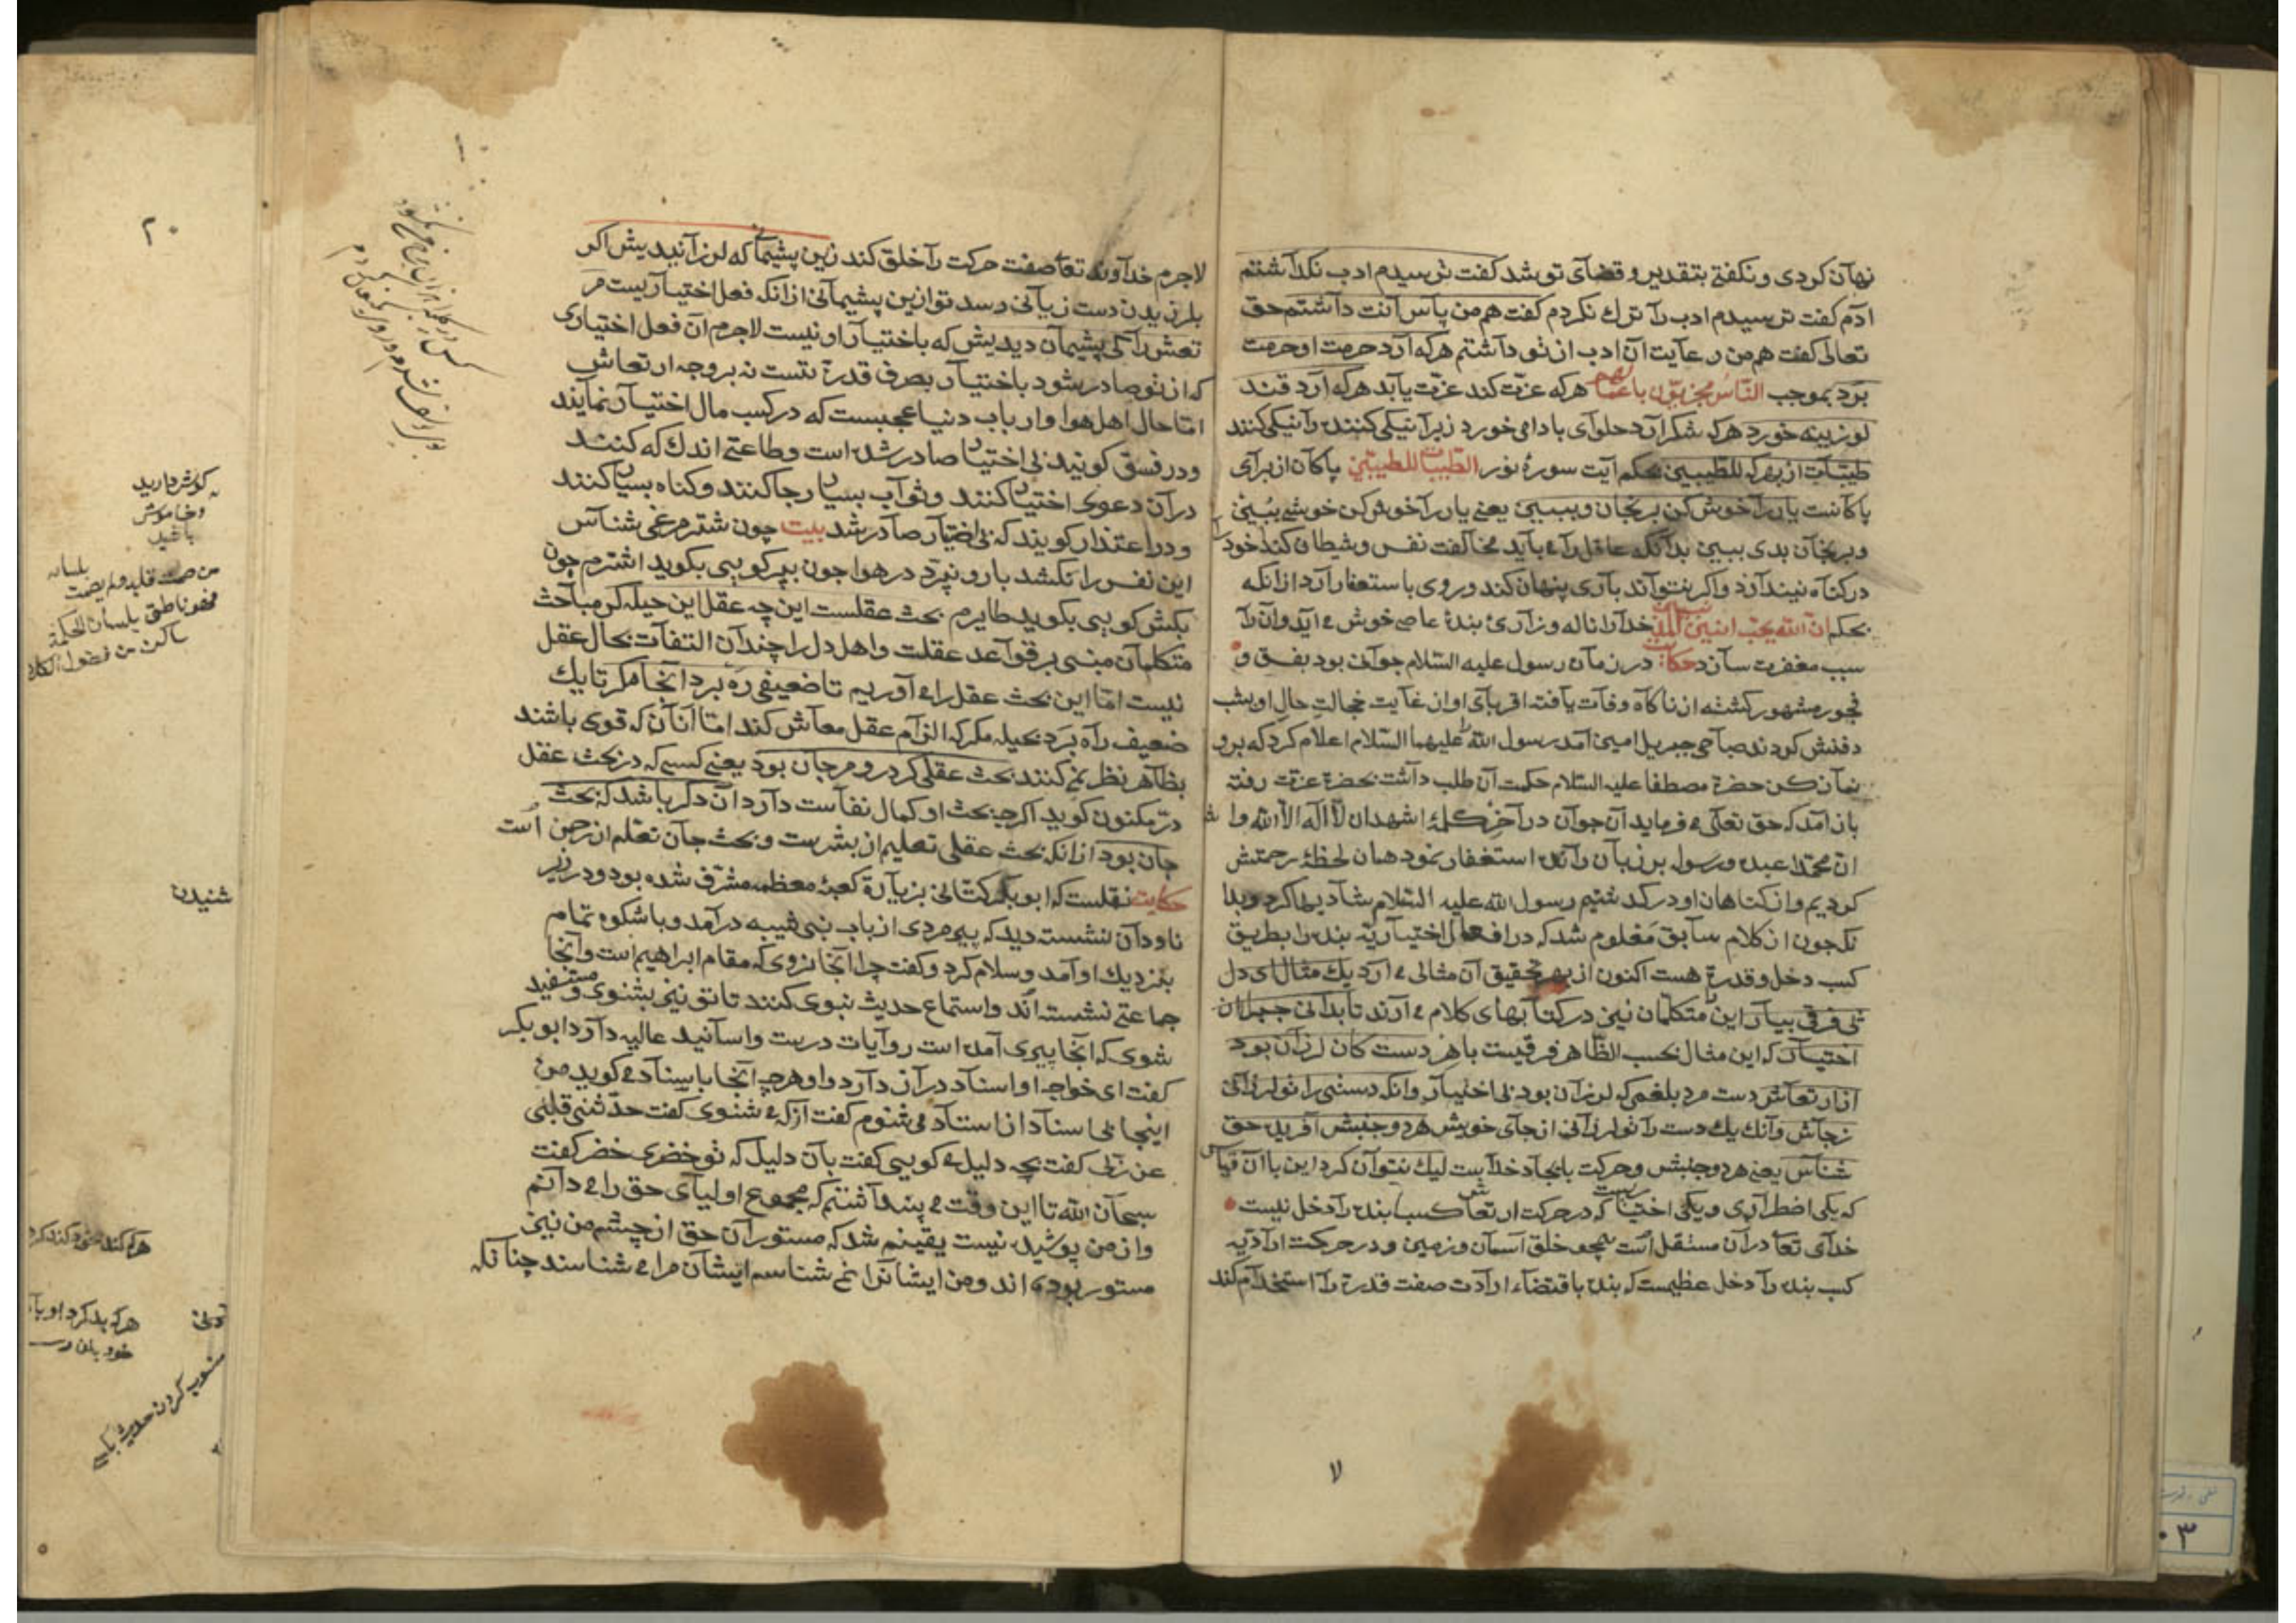 نهان کردی و نکفتی بتقدیر و قضای تو شد کفت ترسیدم ادب نکداشتم
ادم کفت ترسیدم ادب را ترك نکردم کفت هم من پاس انت داشتم حق
تعالی کفت هم من رعایت ان ادب از تو داشتم هرکه ارد حرمت او حرمت
برد بموجب الناس مجزیون باعمالهم هرکه عزت کند عزت یابد هرکه ارد قند
لوزینه خورد هرکه شکر ارد حلوای بادامی خورد زیرا نیکی کننده را نیکی کنند
طیبات از بهر که للطیبین بحکم ایت سورۀ نور الطیبات للطیبین پاکان از برای
پاکانست یار را خوش کن برنجان و ببین یعنی یار را خوش کن خوشی ببینی
و برنجان بدی ببین بدانکه عاقل را می باید مخالفت نفس و شیطان کند خود را
در کناه نیندازد و اکر نتواند باری پنهان کند و روی باستغفار ارد از انکه
بحکم ان الله یحب انین المذنبین خدا را ناله و زاری بندۀ عاصی خوش می اید وان را
سبب مغفرت سازد حکایت در زمان رسول علیه السلام جوانی بود بفسق و
فجور مشهور کشته از ناکاه وفات یافت اقربای او از غایت خجالت حال او بشب
دفنش کردند صباحی جبریل امین امد رسول الله علیهما السلام اعلام کرد که برو
نماز کن حضرة مصطفا علیه السلام حکمت ان طلب داشت بحضرة عزت رفته
باز امد که حق تعالی می فرماید ان جوان در آخر کلمۀ اشهد ان لا اله الا الله وا ش
ان محمدا عبده و رسوله بر زبان رانده استغفار نمود همان لحظۀ رحمتش
کردیم و از کناهان او در کذشتیم رسول الله علیه السلام شادیها کرد و بدا
نکه چون از کلام سابق معلوم شد که در افعال اختیاریه بنده را بطریق
کسب دخل و قدرة هست اکنون از بهر تحقیق ان مثالی می ارد یك مثال ای دل
پی فرقی بیار این را متکلمان نیز در کتابهای کلام می ارند تا بدانی جبر را از
اختیار که این مثال بحسب الظاهر فرقیست باهر دست کان لرزان بود
از ارتعاش دست مرد بلغمی که لرزان بود بی اختیار وانکه دستی را تو لرزانی
ز جاش وانك یك دست را تو لرزانی از جای خویش هر دو جنبش آفریده حق
شناس یعنی هر دو جنبش و حرکت بایجاد خداست لیك نتوان کرد این با ان قیاس
که یکی اضطراری و یکی اختیاریست که در حرکت ارتعاش کسب بنده را دخل نیست
خدای تعا در ان مستقل است همچو خلق آسمان و زمین و در حرکت ارادیه
کسب بنده را دخل عظیمست که بنده باقتضاء ارادت صفت قدرة را استخدام کند
لاجرم خداوند تعا صفت حرکت را خلق کند زین پشیمانی که لرزانیدیش اکر
بلرزیدن دست زیانی رسد تو ازین پشیمانی از انکه فعل اختیاریست مر
تعش را کی پشیمان دیدیش که باختیار او نیست لاجرم ان فعل اختیاری
که از تو صادر شود باختیار بصرف قدرة تست نه بر وجه ارتعاش
اما حال اهل هوا و ارباب دنیا عجبست که در کسب مال اختیار نمایند
و در فسق کویند بی اختیار صادر شده است و طاعتی اندك که کنند
در آن دعوی اختیار کنند و ثواب بسیار رجا کنند و کناه بسیار کنند
و در اعتذار کویند که بی اختیار صادر شد بیت چون شترمرغی شناس
این نفس را نکشد بار و نپرد در هوا چون بپر کویی بکوید اشترم چون
بکش کویی بکوید طایرم بحث عقلست این چه عقل این حیله کر مباحث
متکلمان مبنی بر قواعد عقلست و اهل دل را چندان التفات بحال عقل
نیست اما این بحث عقل را می آوریم تا ضعیفی ره برد انجا مکر تا یك
ضعیف راه برد بحیله مکر که الزام عقل معاش کند اما انان که قوی باشند
بظاهر نظر نمی کنند بحث عقلی کر در و مرجان بود یعنی کسی که در بحث عقل
در مکنون کوید اکرچه بحث او کمال نفاست دارد ان دکر باشد که بحث
جان بود از انکه بحث عقلی تعلیم از بشرست و بحث جان تعلم از رحمن است
حکایت نقلست که ابو بکر کتانی بزیارة کعبۀ معظمه مشرف شده بود و در زیر
ناودان نشسته دید که پیر مردی از باب بنی شیبه درآمد و باشکوه تمام
بنزدیك او آمد و سلام کرد و کفت چرا انجا نروی که مقام ابراهیم است و آنجا
جماعتی نشسته اند و استماع حدیث نبوی کنند تا تو نیز بشنوی و مستفید
شوی که انجا پیری آمده است روایات درست و اسانید عالیه دارد ابو بکر
کفت ای خواجه او اسناد دراز دارد و او هرچه انجا باسناد می کوید من
اینجا بی اسناد از استاد می شنوم کفت از که می شنوی کفت حدثنی قلبی
عن ربی کفت بچه دلیل می کویی کفت بان دلیل که تو خضری خضر کفت
سبحان الله تا این وقت می پنداشتم که مجموع اولیای حق را می دانم
و از من پوشیده نیست یقینم شد که مستوران حق از چشم من نیز
مستور بوده اند و من ایشانرا نمی شناسم ایشان مرا می شناسند چنانکه
لا
۲۰
کوش دارید
و خاموش
باشید
من صمت قلبه ولم یصمت بلسانه
فهو ناطق بلسان الحکمة
شنیدن
هرکه بد کرد او با
منسوب کردن حدیث
۰۳